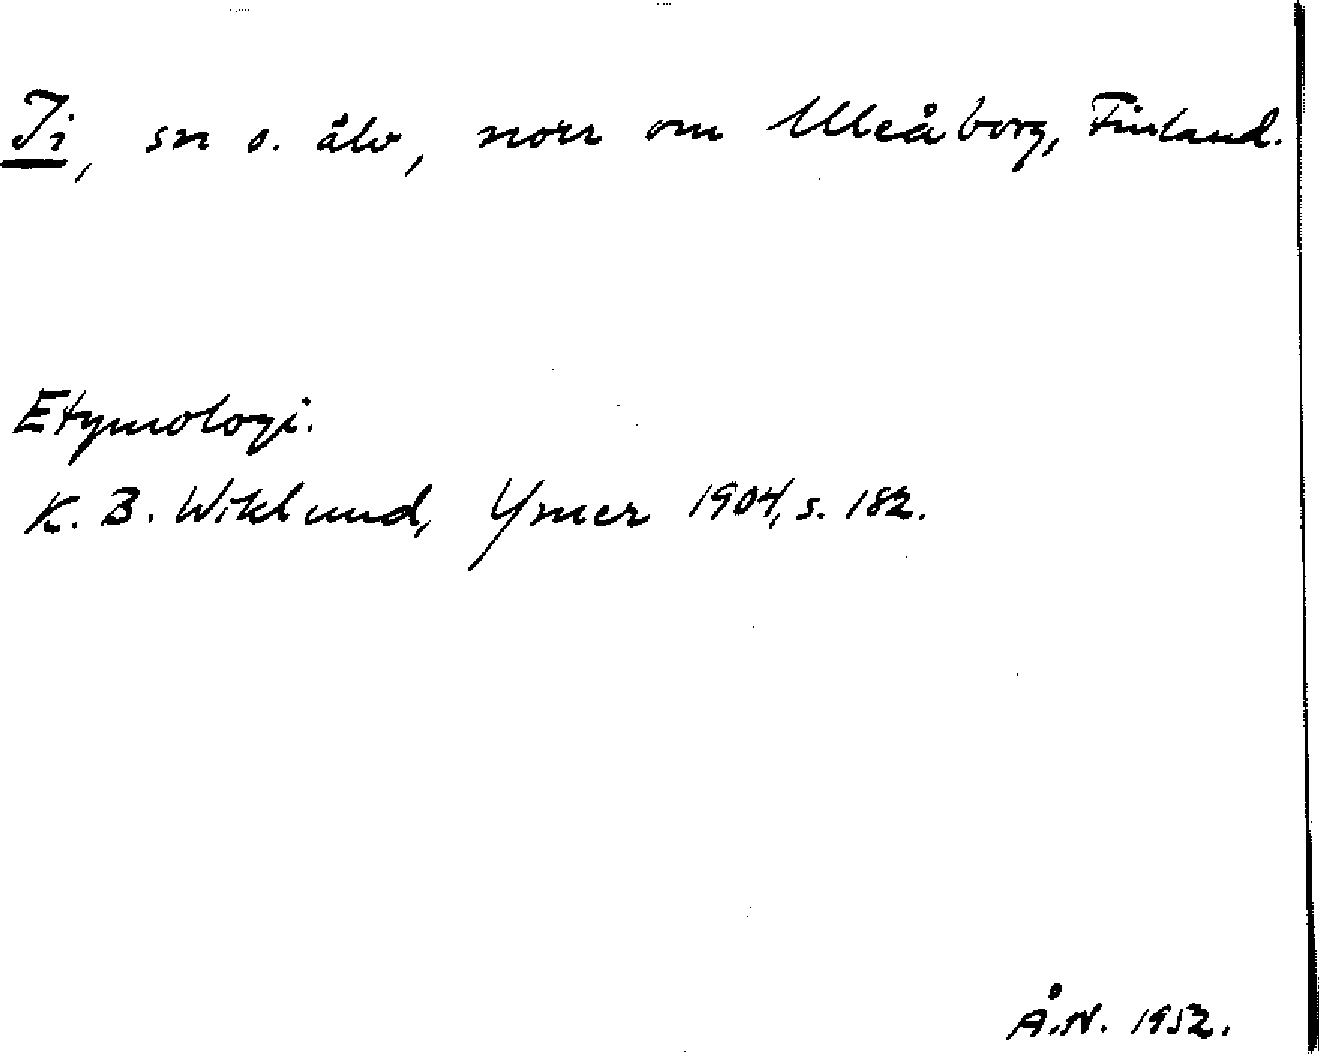 Ii, sn o. älv, norr om Uleåborg, Finland.
Etymologi.
K. B. Wiklund, Ymer 1904, s. 182.
Å.N. 1952.